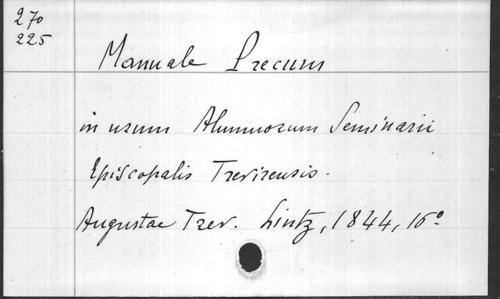 270
225
Manuale Precum
in usum Alumnorum Seminarii
Episcopalis Trevirensis.
Augustae Trev. Lintz, 1844, 16º